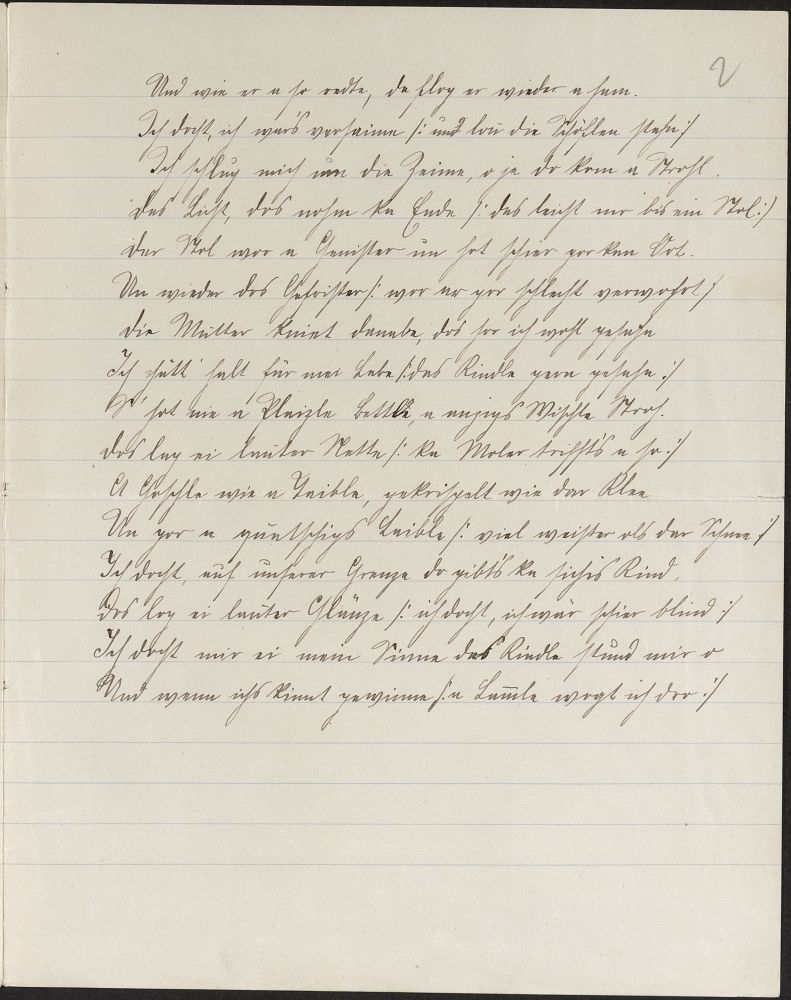 2
Und wie er a so redte, da flog er wieder a ham.
Ich docht, ich wär's versaime /: und lou die Schöllen stehn :/
Ich schlug mich um die Zeime, o je do kom a Strohl.
Das Licht, dos nohm ka Ende /: das leicht mir bis ein Stol :/
Der Stol wor a Genister un hot schier gor kan Ort.
Un wieder dos Gefrister /: wor ar gor schlecht verwohrt :/
Die Mutter kniet danabe, dos hor ich wohl gesahn
Ich hätt' halt für mei Labe /: das Kindle gern gesahn :/
S' hot nie a Plaizle Bettla, a anzigs Wischle Stroh.
Dos lag ei lauter Nette /: ka Moler trifft's a so :/
A Goschle wie a Taible, gekrispelt wie dar Klee
Un gor a quatschigs Leible /: viel weißer als dar Schnee :/
Ich docht, auf unserer Grenze do gibt's ka sichis Kind,
Dos log ei lauter Glänze /: ich docht, ich wär schier blind :/
Ich docht mir ei mein Sinne das Kindle stund mir o
Und wenn ichs kinnt gewinne /: a Lammle wogt ich dro :/